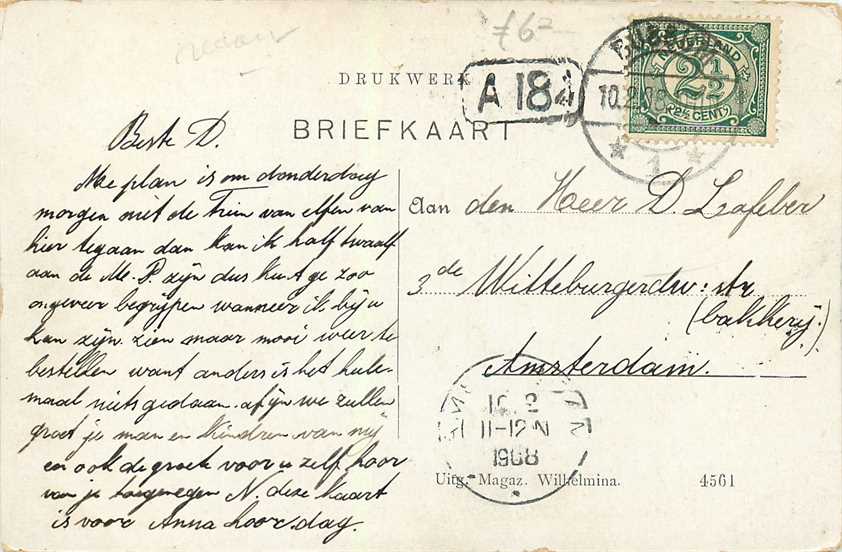 £6²
DRUKWERK
A 184
NEDERLAND
2½
(2½ CENT)
BUSSUM
10.2.08
1
BRIEFKAART
Beste D.
Me plan is om donderdag
morgen met de Trein van elfen van
hier tegaan dan kan ik half twaalf
aan de M. P. zijn dus kunt ge zoo
ongeveer begrijpen wanneer ik bij u
kan zijn. zien maar mooi weer te
bestellen want anders is het hele-
maal niets gedaan. afijn we zullen
groet je man en kindren van mij
en ook de groete voor u zelf hoor
van je toegenegen N. deze kaart
is voor Anna hoor. dag.
Aan den Heer D. Lafeber
3de Wittenburgerdw: str
(bakkerij.)
Amsterdam.
10 2
11-12 N
1908
Uitg. Magaz. Wilhelmina. 4561